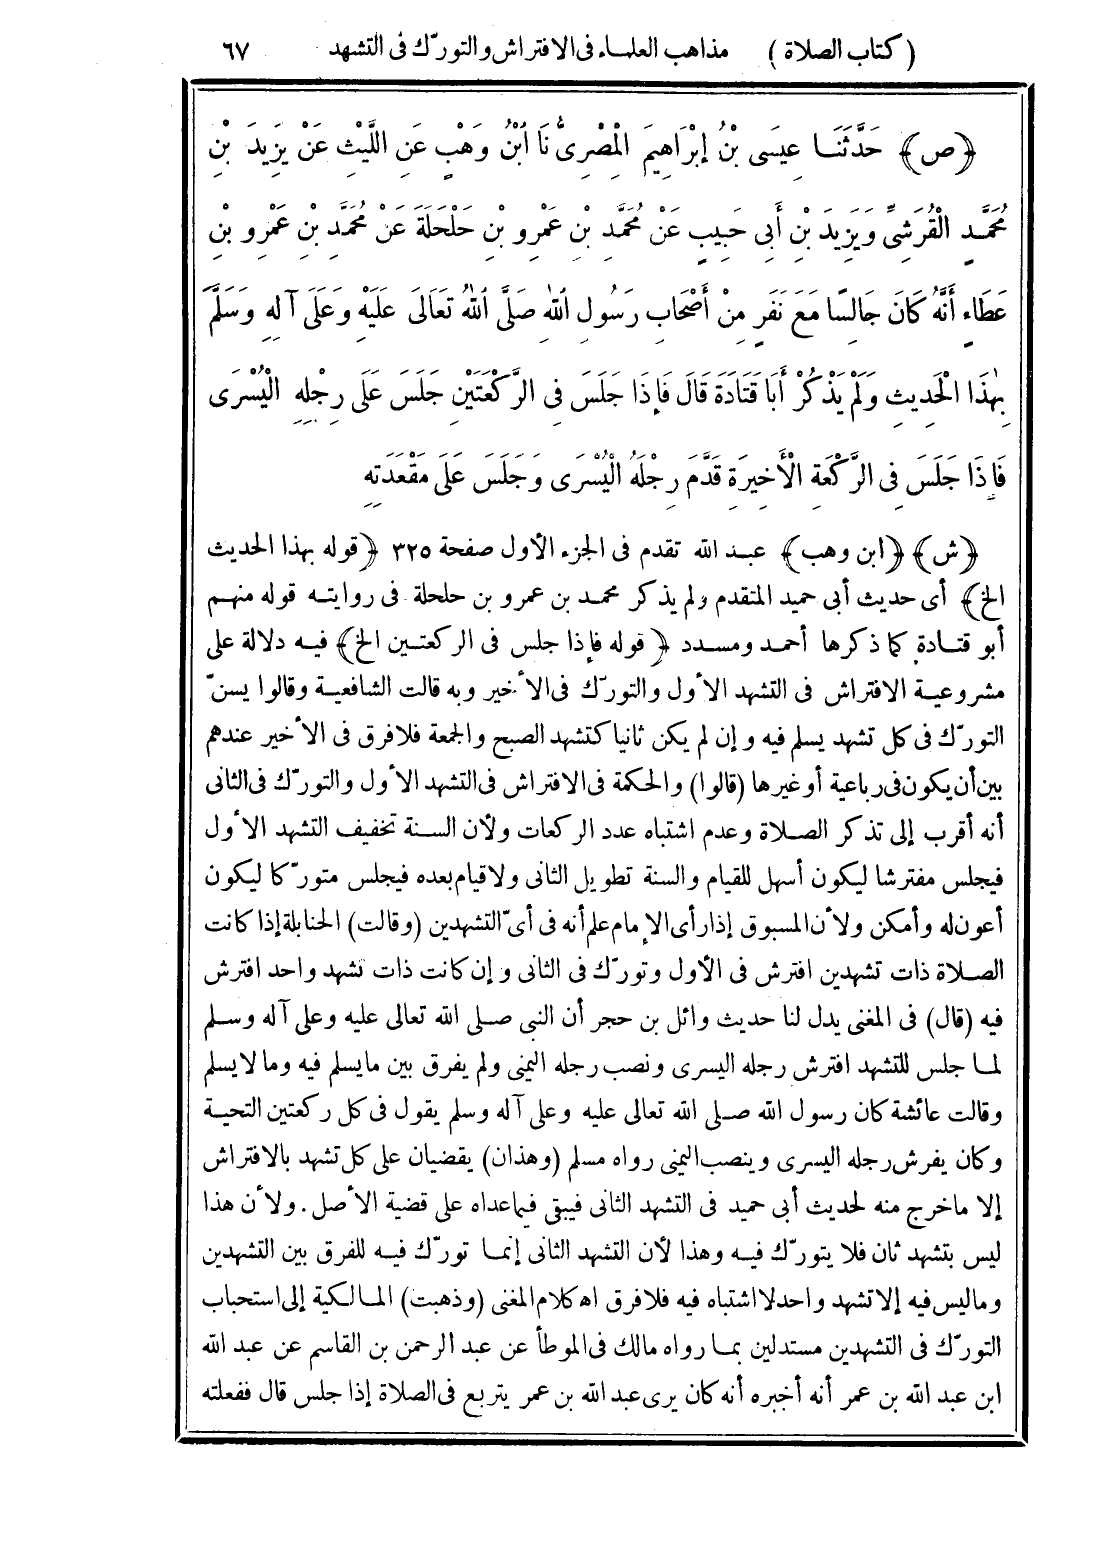 ( كتاب الصلاة ) مذاهب العلماء فى الافتراش والتورّك فى التشهد ٦٧
﴿ص﴾ حَدَّثَنَا عِيسَى بْنُ إِبْرَاهِيمَ الْمِصْرِىُّ نَا ابْنُ وَهْبٍ عَنِ اللَّيْثِ عَنْ يَزِيدَ بْنِ
مُحَمَّدٍ الْقُرَشِىِّ وَيَزِيدَ بْنِ أَبِى حَبِيبٍ عَنْ مُحَمَّدِ بْنِ عَمْرِو بْنِ حَلْحَلَةَ عَنْ مُحَمَّدِ بْنِ عَمْرِو بْنِ
عَطَاءٍ أَنَّهُ كَانَ جَالِسًا مَعَ نَفَرٍ مِنْ أَصْحَابِ رَسُولِ اللهِ صَلَّى اللهُ تَعَالَى عَلَيْهِ وَعَلَى آلِهِ وَسَلَّمَ
بِهٰذَا الْحَدِيثِ وَلَمْ يَذْكُرْ أَبَا قَتَادَةَ قَالَ فَإِذَا جَلَسَ فِى الرَّكْعَتَيْنِ جَلَسَ عَلَى رِجْلِهِ الْيُسْرَى
فَإِذَا جَلَسَ فِى الرَّكْعَةِ الْأَخِيرَةِ قَدَّمَ رِجْلَهُ الْيُسْرَى وَجَلَسَ عَلَى مَقْعَدَتِهِ
﴿ش﴾ ﴿ابن وهب﴾ عبد الله تقدم فى الجزء الأول صفحة ٣٢٥ ﴿قوله بهذا الحديث
الخ﴾ أى حديث أبى حميد المتقدم ولم يذكر محمد بن عمرو بن حلحلة فى روايته قوله منهم
أبو قتادة كما ذكرها أحمد ومسدد ﴿قوله فإذا جلس فى الركعتين الخ﴾ فيه دلالة على
مشروعية الافتراش فى التشهد الأول والتورّك فى الأخير وبه قالت الشافعية وقالوا يسنّ
التورّك فى كل تشهد يسلم فيه وإن لم يكن ثانيا كتشهد الصبح والجمعة فلا فرق فى الأخير عندهم
بين أن يكون فى رباعية أو غيرها (قالوا) والحكمة فى الافتراش فى التشهد الأول والتورّك فى الثانى
أنه أقرب إلى تذكر الصلاة وعدم اشتباه عدد الركعات ولأن السنة تخفيف التشهد الأول
فيجلس مفترشا ليكون أسهل للقيام والسنة تطويل الثانى ولا قيام بعده فيجلس متورّكا ليكون
أعون له وأمكن ولأن المسبوق إذا رأى الإمام علم أنه فى أىّ التشهدين (وقالت) الحنابلة إذا كانت
الصلاة ذات تشهدين افترش فى الأول وتورّك فى الثانى وإن كانت ذات تشهد واحد افترش
فيه (قال) فى المغنى يدل لنا حديث وائل بن حجر أن النبى صلى الله تعالى عليه وعلى آله وسلم
لما جلس للتشهد افترش رجله اليسرى ونصب رجله اليمنى ولم يفرق بين ما يسلم فيه وما لا يسلم
وقالت عائشة كان رسول الله صلى الله تعالى عليه وعلى آله وسلم يقول فى كل ركعتين التحية
وكان يفرش رجله اليسرى وينصب اليمنى رواه مسلم (وهذان) يقضيان على كل تشهد بالافتراش
إلا ما خرج منه لحديث أبى حميد فى التشهد الثانى فيبقى فيما عداه على قضية الأصل . ولأن هذا
ليس بتشهد ثان فلا يتورّك فيه وهذا لأن التشهد الثانى إنما تورّك فيه للفرق بين التشهدين
وما ليس فيه إلا تشهد واحد لا اشتباه فيه فلا فرق اه كلام المغنى (وذهبت) المالكية إلى استحباب
التورّك فى التشهدين مستدلين بما رواه مالك فى الموطأ عن عبد الرحمن بن القاسم عن عبد الله
ابن عبد الله بن عمر أنه أخبره أنه كان يرى عبد الله بن عمر يتربع فى الصلاة إذا جلس قال ففعلته